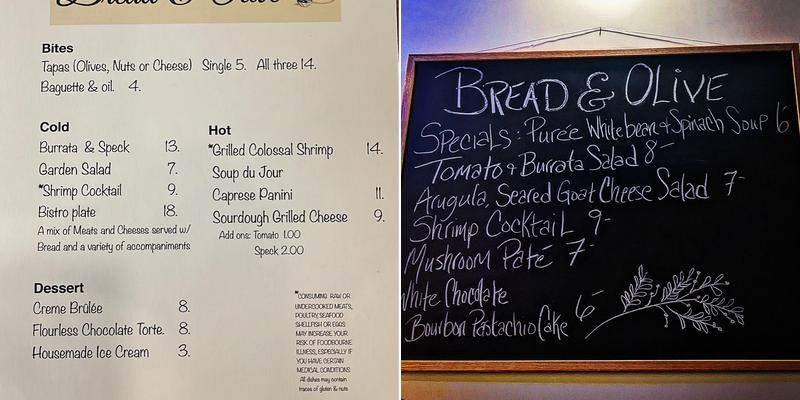 Bread & Olive
Bites
Tapas (Olives, Nuts or Cheese) Single 5. All three 14.
Baguette & oil. 4.
Cold
Burrata & Speck 13.
Garden Salad 7.
*Shrimp Cocktail 9.
Bistro plate 18.
A mix of Meats and Cheeses served w/
Bread and a variety of accompaniments
Hot
*Grilled Colossal Shrimp 14.
Soup du Jour
Caprese Panini 11.
Sourdough Grilled Cheese 9.
Add ons: Tomato 1.00
Speck 2.00
Dessert
Creme Brûlée 8.
Flourless Chocolate Torte. 8.
Housemade Ice Cream 3.
*CONSUMING RAW OR
UNDERCOOKED MEATS,
POULTRY, SEAFOOD
SHELLFISH OR EGGS
MAY INCREASE YOUR
RISK OF FOODBOURNE
ILLNESS, ESPECIALLY IF
YOU HAVE CERTAIN
MEDICAL CONDITIONS
All dishes may contain
traces of gluten & nuts
BREAD & OLIVE
Specials: Purée White bean & Spinach Soup 6
Tomato & Burrata Salad 8-
Arugula, Seared Goat Cheese Salad 7-
Shrimp Cocktail 9-
Mushroom Paté 7-
White Chocolate
Bourbon Pastachio Cake 6-